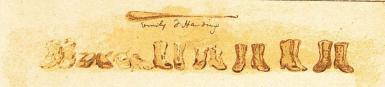 Emily F Harding